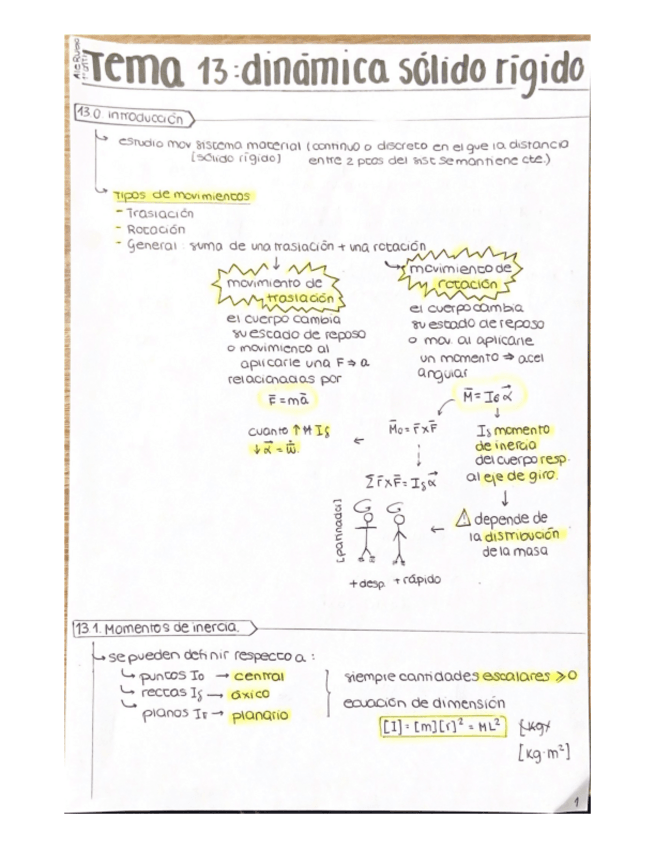 Tema 13: dinámica sólido rígido
13.0. introducción
estudio mov sistema material (continuo o discreto en el que la distancia
[sólido rígido] entre 2 ptos del sist se mantiene cte.)
Tipos de movimientos
- Traslación
- Rotación
- General: suma de una traslación + una rotación
movimiento de
traslación
el cuerpo cambia
su estado de reposo
o movimiento al
aplicarle una F ⇒ a
relacionadas por
F̄ = mā
movimiento de
rotación
el cuerpo cambia
su estado de reposo
o mov. al aplicarle
un momento ⇒ acel
angular
cuanto ↑M Iδ
↓ α⃗ = ω̇.
←
M̄o = r̄ x F̄
Σ r̄ x F̄ = Iδ α⃗
Iδ momento
de inercia
del cuerpo resp.
al eje de giro.
⚠ depende de
la distribución
de la masa
[patinador]
+ desp. + rápido
13.1. Momentos de inercia.
se pueden definir respecto a:
puntos Io → central
rectas Iδ → áxico
planos → planario
siempre cantidades escalares ⩾0
ecuación de dimensión
[I] = [m][r]² = ML²
[kg·m²]
1